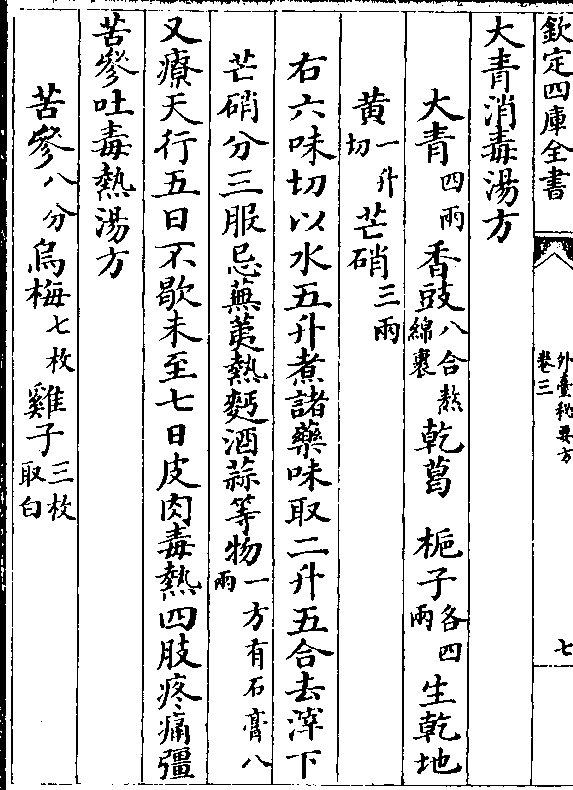 欽定四庫全書
外臺秘要方
卷三
七
大青消毒湯方
大青四兩香豉八合熬綿裹乾葛 梔子各四兩生乾地
黄一升切芒硝三兩
右六味切以水五升煮諸藥味取二升五合去滓下
芒硝分三服忌蕪荑熱麫酒蒜等物一方有石膏八兩
又療天行五日不歇未至七日皮肉毒熱四肢疼痛彊
苦參吐毒熱湯方
苦參八分烏梅七枚雞子三枚取白